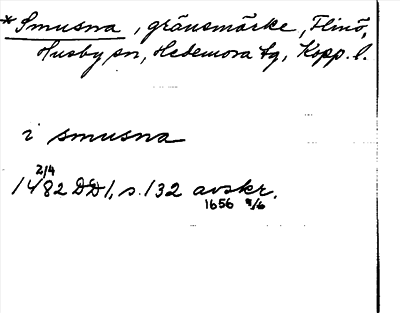 *Smusna, gränsmärke, Flinö,
Husby sn, Hedemora tg, Kopp. l.
i smusna
2/4
1482 DD1, s. 132 avskr.
1656 9/6